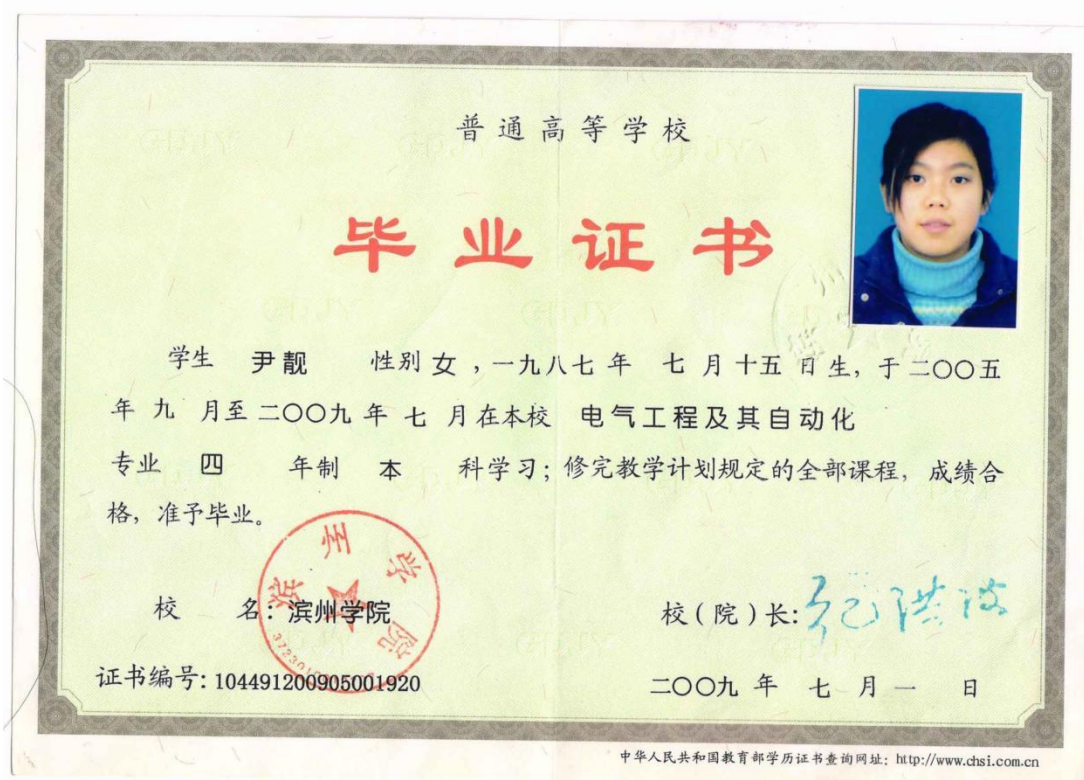 普通高等学校
毕业证书
学生 尹靓 性别 女 ,一九八七 年 七 月 十五 日生, 于 二〇〇五
年 九 月至 二〇〇九 年 七 月在本校 电气工程及其自动化
专业 四 年制 本 科学习; 修完教学计划规定的全部课程, 成绩合
格, 准予毕业。
滨州学院
校 名: 滨州学院
校(院)长: 纪洪波
证书编号: 104491200905001920
二〇〇九 年 七 月 一 日
中华人民共和国教育部学历证书查询网址: http://www.chsi.com.cn